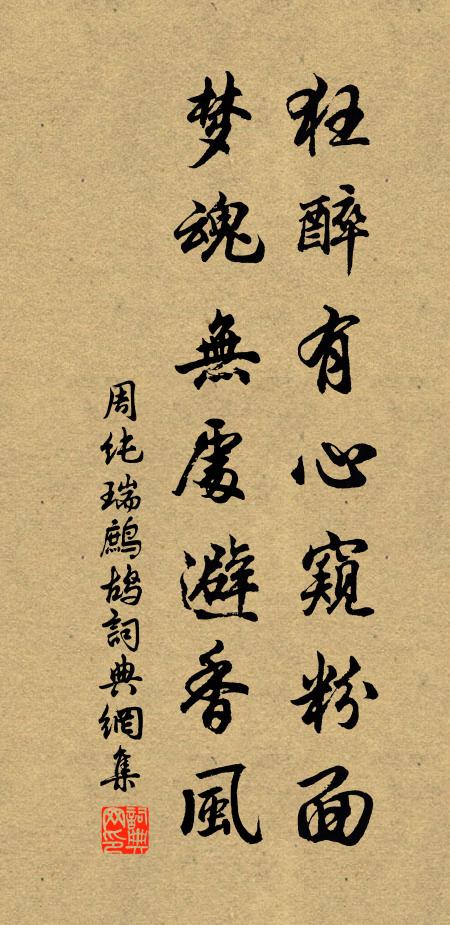 狂醉有心窺粉面
梦魂無處避香風
周纯瑞鷓鴣詞典網集
詞典网印